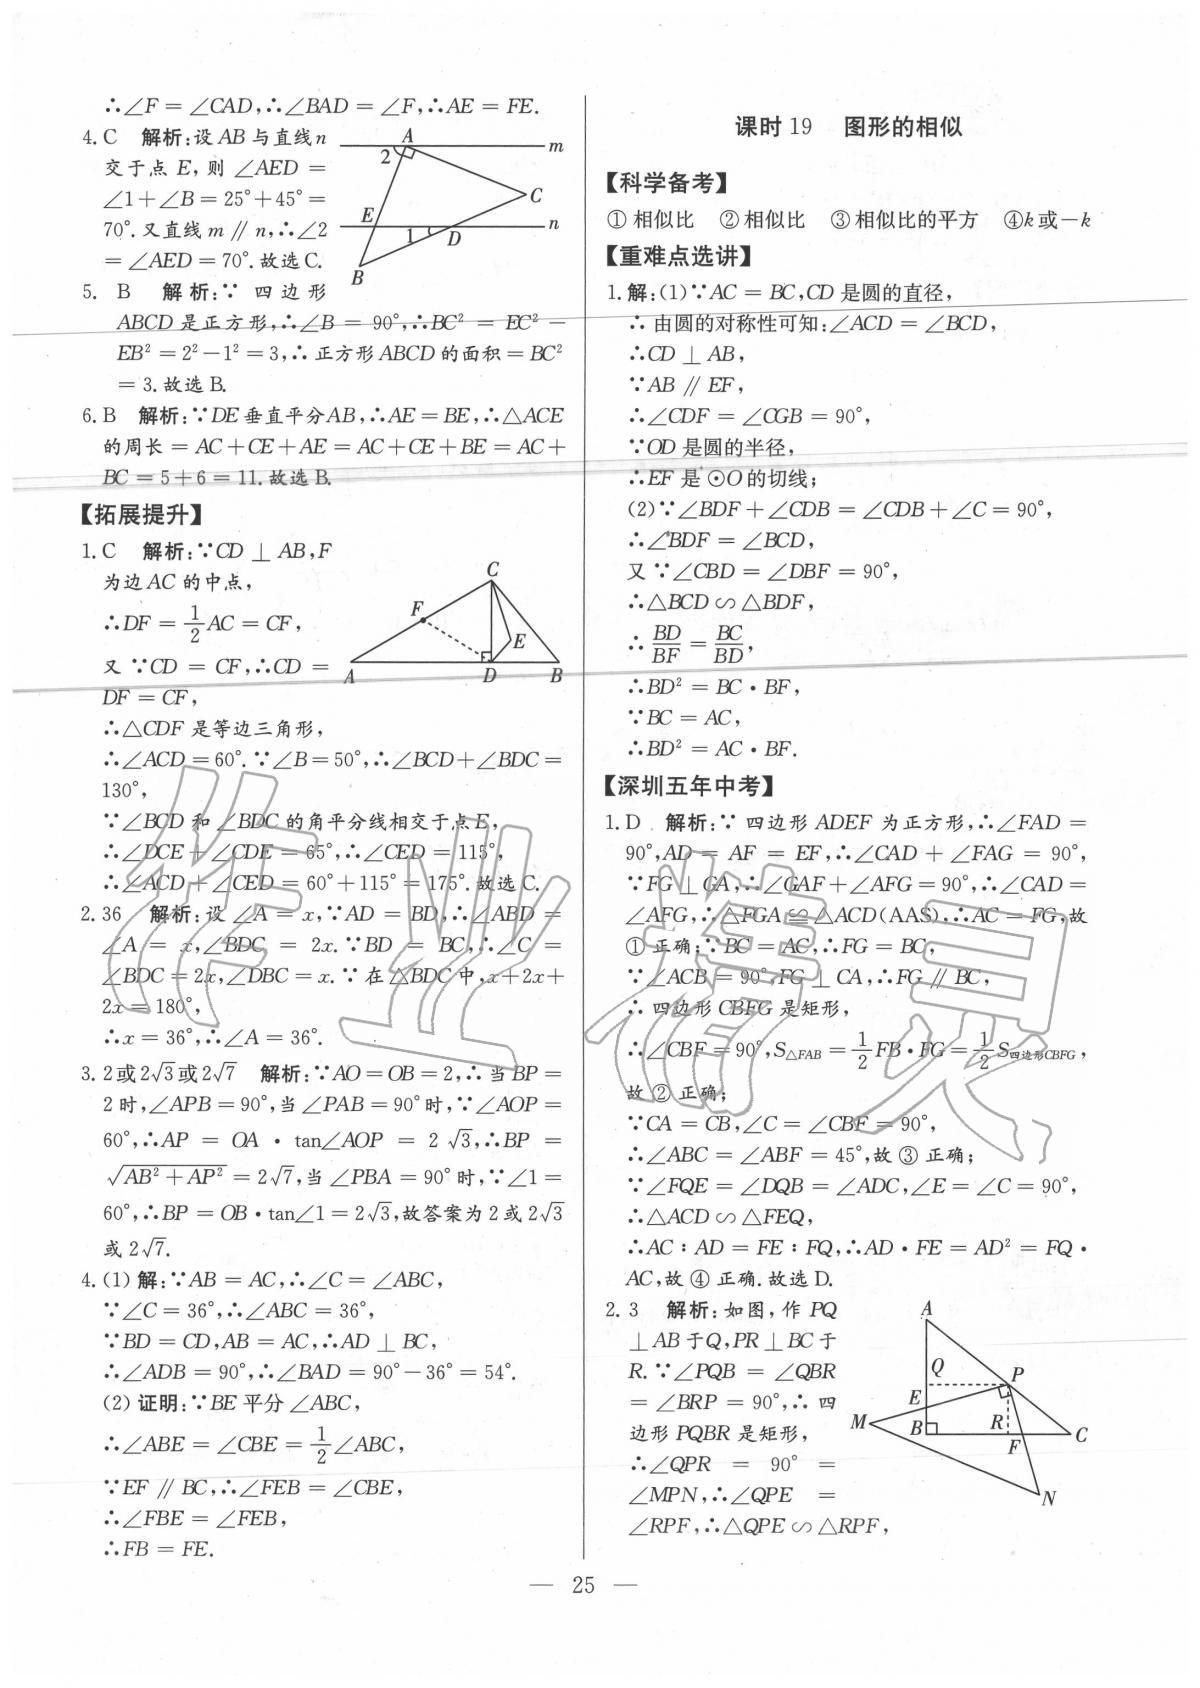 ∴∠F = ∠CAD,∴∠BAD = ∠F,∴AE = FE.
4. C 解析:设 AB 与直线 n
交于点 E, 则 ∠AED =
∠1+∠B=25°+45°=
70°.又直线 m∥n,∴∠2
=∠AED=70°.故选C.
A
2
m
C
E
n
1
D
B
5. B 解析:∵ 四边形
ABCD 是正方形,∴∠B = 90°,∴BC² = EC² −
EB²=2²−1²=3,∴正方形ABCD的面积=BC²
=3.故选B.
6. B 解析:∵DE垂直平分AB,∴AE=BE,∴△ACE
的周长=AC+CE+AE=AC+CE+BE=AC+
BC=5+6=11.故选B.
【拓展提升】
1. C 解析:∵CD ⊥ AB,F
为边AC的中点,
∴DF = 1/2 AC = CF,
又 ∵CD = CF,∴CD =
DF = CF,
C
F
E
A
D
B
∴△CDF 是等边三角形,
∴∠ACD=60°.∵∠B=50°,∴∠BCD+∠BDC=
130°,
∵∠BCD 和∠BDC 的角平分线相交于点E,
∴∠DCE+∠CDE=65°,∴∠CED=115°,
∴∠ACD+∠CED=60°+115°=175°.故选C.
2. 36 解析:设 ∠A = x,∵AD = BD,∴∠ABD =
∠A = x,∠BDC = 2x.∵BD = BC,∴∠C =
∠BDC=2x,∠DBC=x.∵在△BDC中,x+2x+
2x=180°,
∴x=36°,∴∠A=36°.
3. 2或2√3或2√7 解析:∵AO=OB=2,∴当BP=
2时,∠APB=90°,当∠PAB=90°时,∵∠AOP=
60°,∴AP = OA · tan∠AOP = 2√3,∴BP =
√(AB²+AP²)=2√7,当∠PBA=90°时,∵∠1=
60°,∴BP=OB·tan∠1=2√3,故答案为2或2√3
或2√7.
4. (1) 解:∵AB = AC,∴∠C = ∠ABC,
∵∠C = 36°,∴∠ABC = 36°,
∵BD = CD,AB = AC,∴AD ⊥ BC,
∴∠ADB = 90°,∴∠BAD = 90°−36° = 54°.
(2) 证明:∵BE 平分 ∠ABC,
∴∠ABE = ∠CBE = 1/2 ∠ABC,
∵EF ∥ BC,∴∠FEB = ∠CBE,
∴∠FBE = ∠FEB,
∴FB = FE.
课时19 图形的相似
【科学备考】
① 相似比 ② 相似比 ③ 相似比的平方 ④k或−k
【重难点选讲】
1. 解:(1)∵AC = BC,CD 是圆的直径,
∴ 由圆的对称性可知:∠ACD = ∠BCD,
∴CD ⊥ AB,
∵AB ∥ EF,
∴∠CDF = ∠CGB = 90°,
∵OD 是圆的半径,
∴EF 是 ⊙O 的切线;
(2)∵∠BDF+∠CDB = ∠CDB+∠C = 90°,
∴∠BDF = ∠BCD,
又 ∵∠CBD = ∠DBF = 90°,
∴△BCD ∽ △BDF,
∴ BD/BF = BC/BD,
∴BD² = BC·BF,
∵BC = AC,
∴BD² = AC·BF.
【深圳五年中考】
1. D 解析:∵ 四边形 ADEF 为正方形,∴∠FAD =
90°,AD = AF = EF,∴∠CAD + ∠FAG = 90°,
∵FG⊥CA,∴∠GAF+∠AFG=90°,∴∠CAD=
∠AFG,∴△FGA≌△ACD(AAS),∴AC=FG,故
① 正确;∵BC = AC,∴FG = BC,
∵∠ACB=90°,FG⊥CA,∴FG∥BC,
∴ 四边形 CBFG 是矩形,
∴∠CBF=90°,S△FAB=1/2 FB·FG=1/2 S四边形CBFG,
故 ② 正确;
∵CA = CB,∠C = ∠CBF = 90°,
∴∠ABC = ∠ABF = 45°,故 ③ 正确;
∵∠FQE = ∠DQB = ∠ADC,∠E = ∠C = 90°,
∴△ACD ∽ △FEQ,
∴AC∶AD = FE∶FQ,∴AD·FE = AD² = FQ·
AC,故 ④ 正确.故选D.
2. 3 解析:如图,作 PQ
⊥AB于Q,PR⊥BC于
R.∵∠PQB = ∠QBR
= ∠BRP = 90°,∴ 四
边形 PQBR 是矩形,
∴∠QPR = 90° =
∠MPN,∴∠QPE =
∠RPF,∴△QPE∽△RPF,
A
Q
P
E
M
B
R
F
C
N
— 25 —
作业精灵